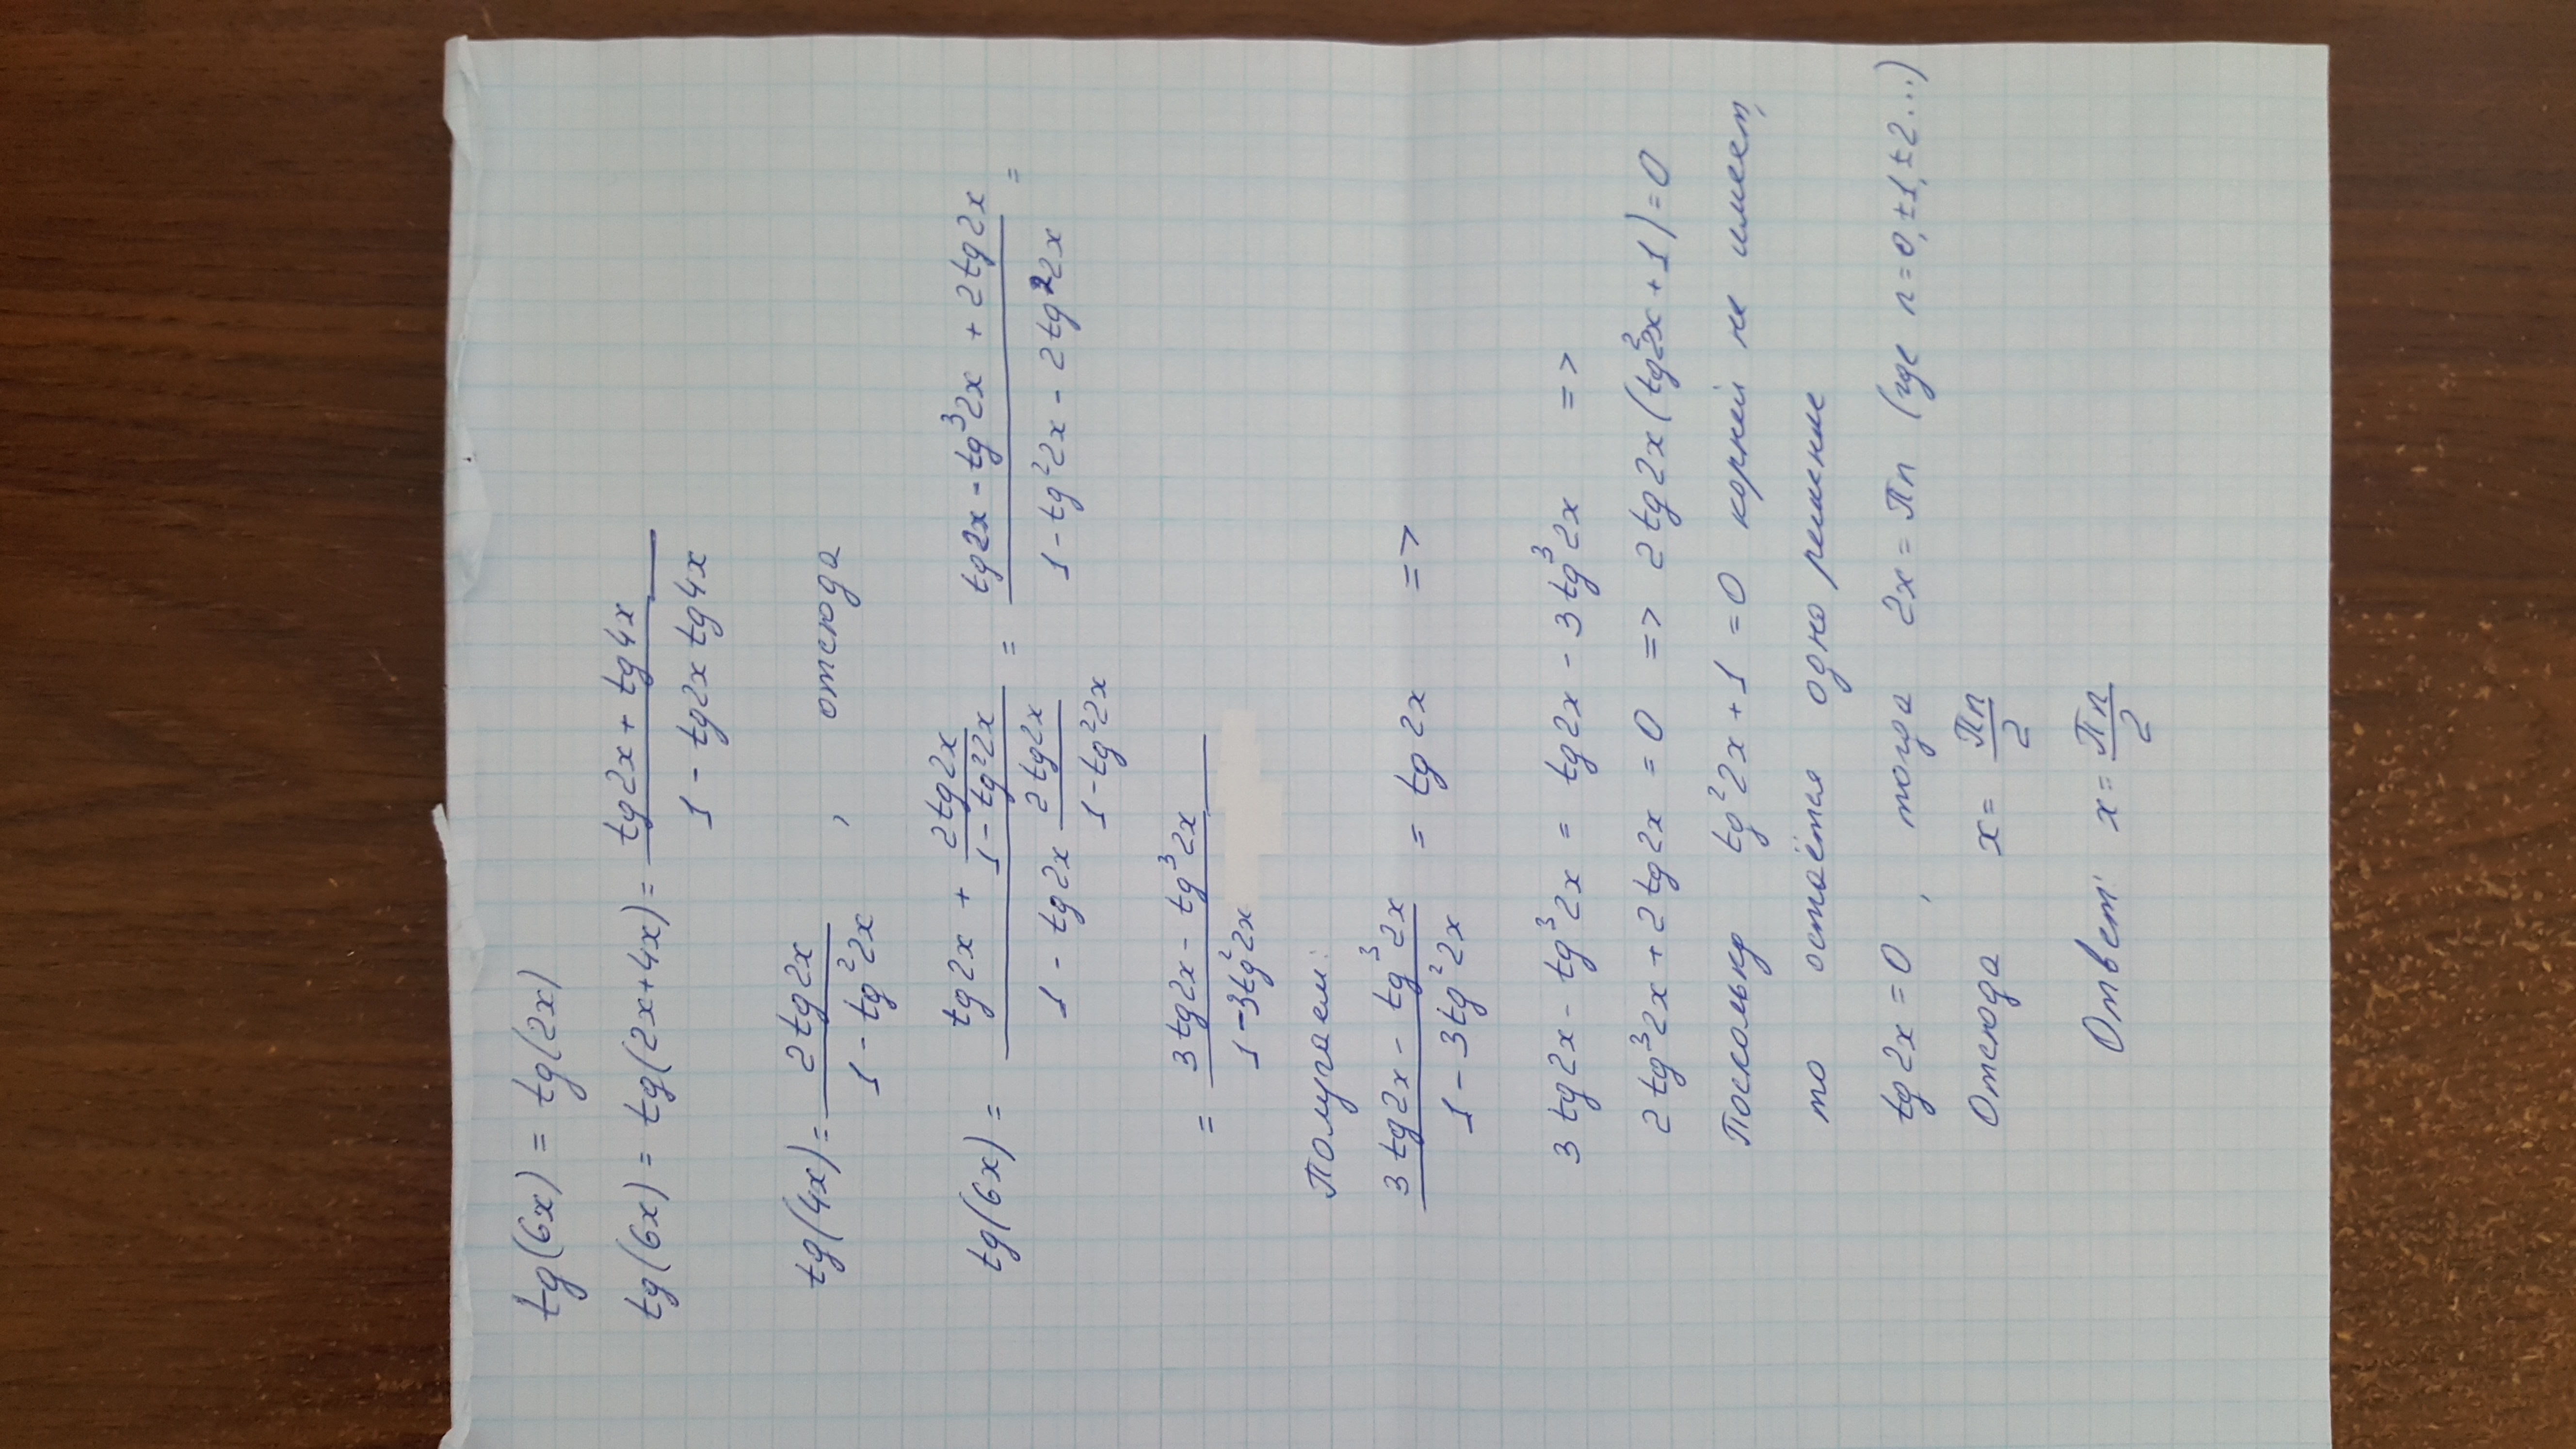 tg(6x) = tg(2x)
tg(6x) = tg(2x+4x) = \frac{tg2x + tg4x}{1 - tg2x tg4x}
tg(4x) = \frac{2tg2x}{1 - tg²2x} , отсюда
tg(6x) = \frac{tg2x + \frac{2tg2x}{1-tg²2x}}{1 - tg2x \frac{2tg2x}{1-tg²2x}} = \frac{tg2x - tg³2x + 2tg2x}{1 - tg²2x - 2tg²2x} =
= \frac{3tg2x - tg³2x}{1 - 3tg²2x}
Получаем:
\frac{3tg2x - tg³2x}{1 - 3tg²2x} = tg2x =>
3tg2x - tg³2x = tg2x - 3tg³2x =>
2tg³2x + 2tg2x = 0 => 2tg2x(tg²2x + 1) = 0
Поскольку tg²2x + 1 = 0 корней не имеет,
то остаётся одно решение
tg2x = 0 , тогда 2x = Пn (где n = 0, ±1, ±2...)
Отсюда x = \frac{Пn}{2}
Ответ: x = \frac{Пn}{2}